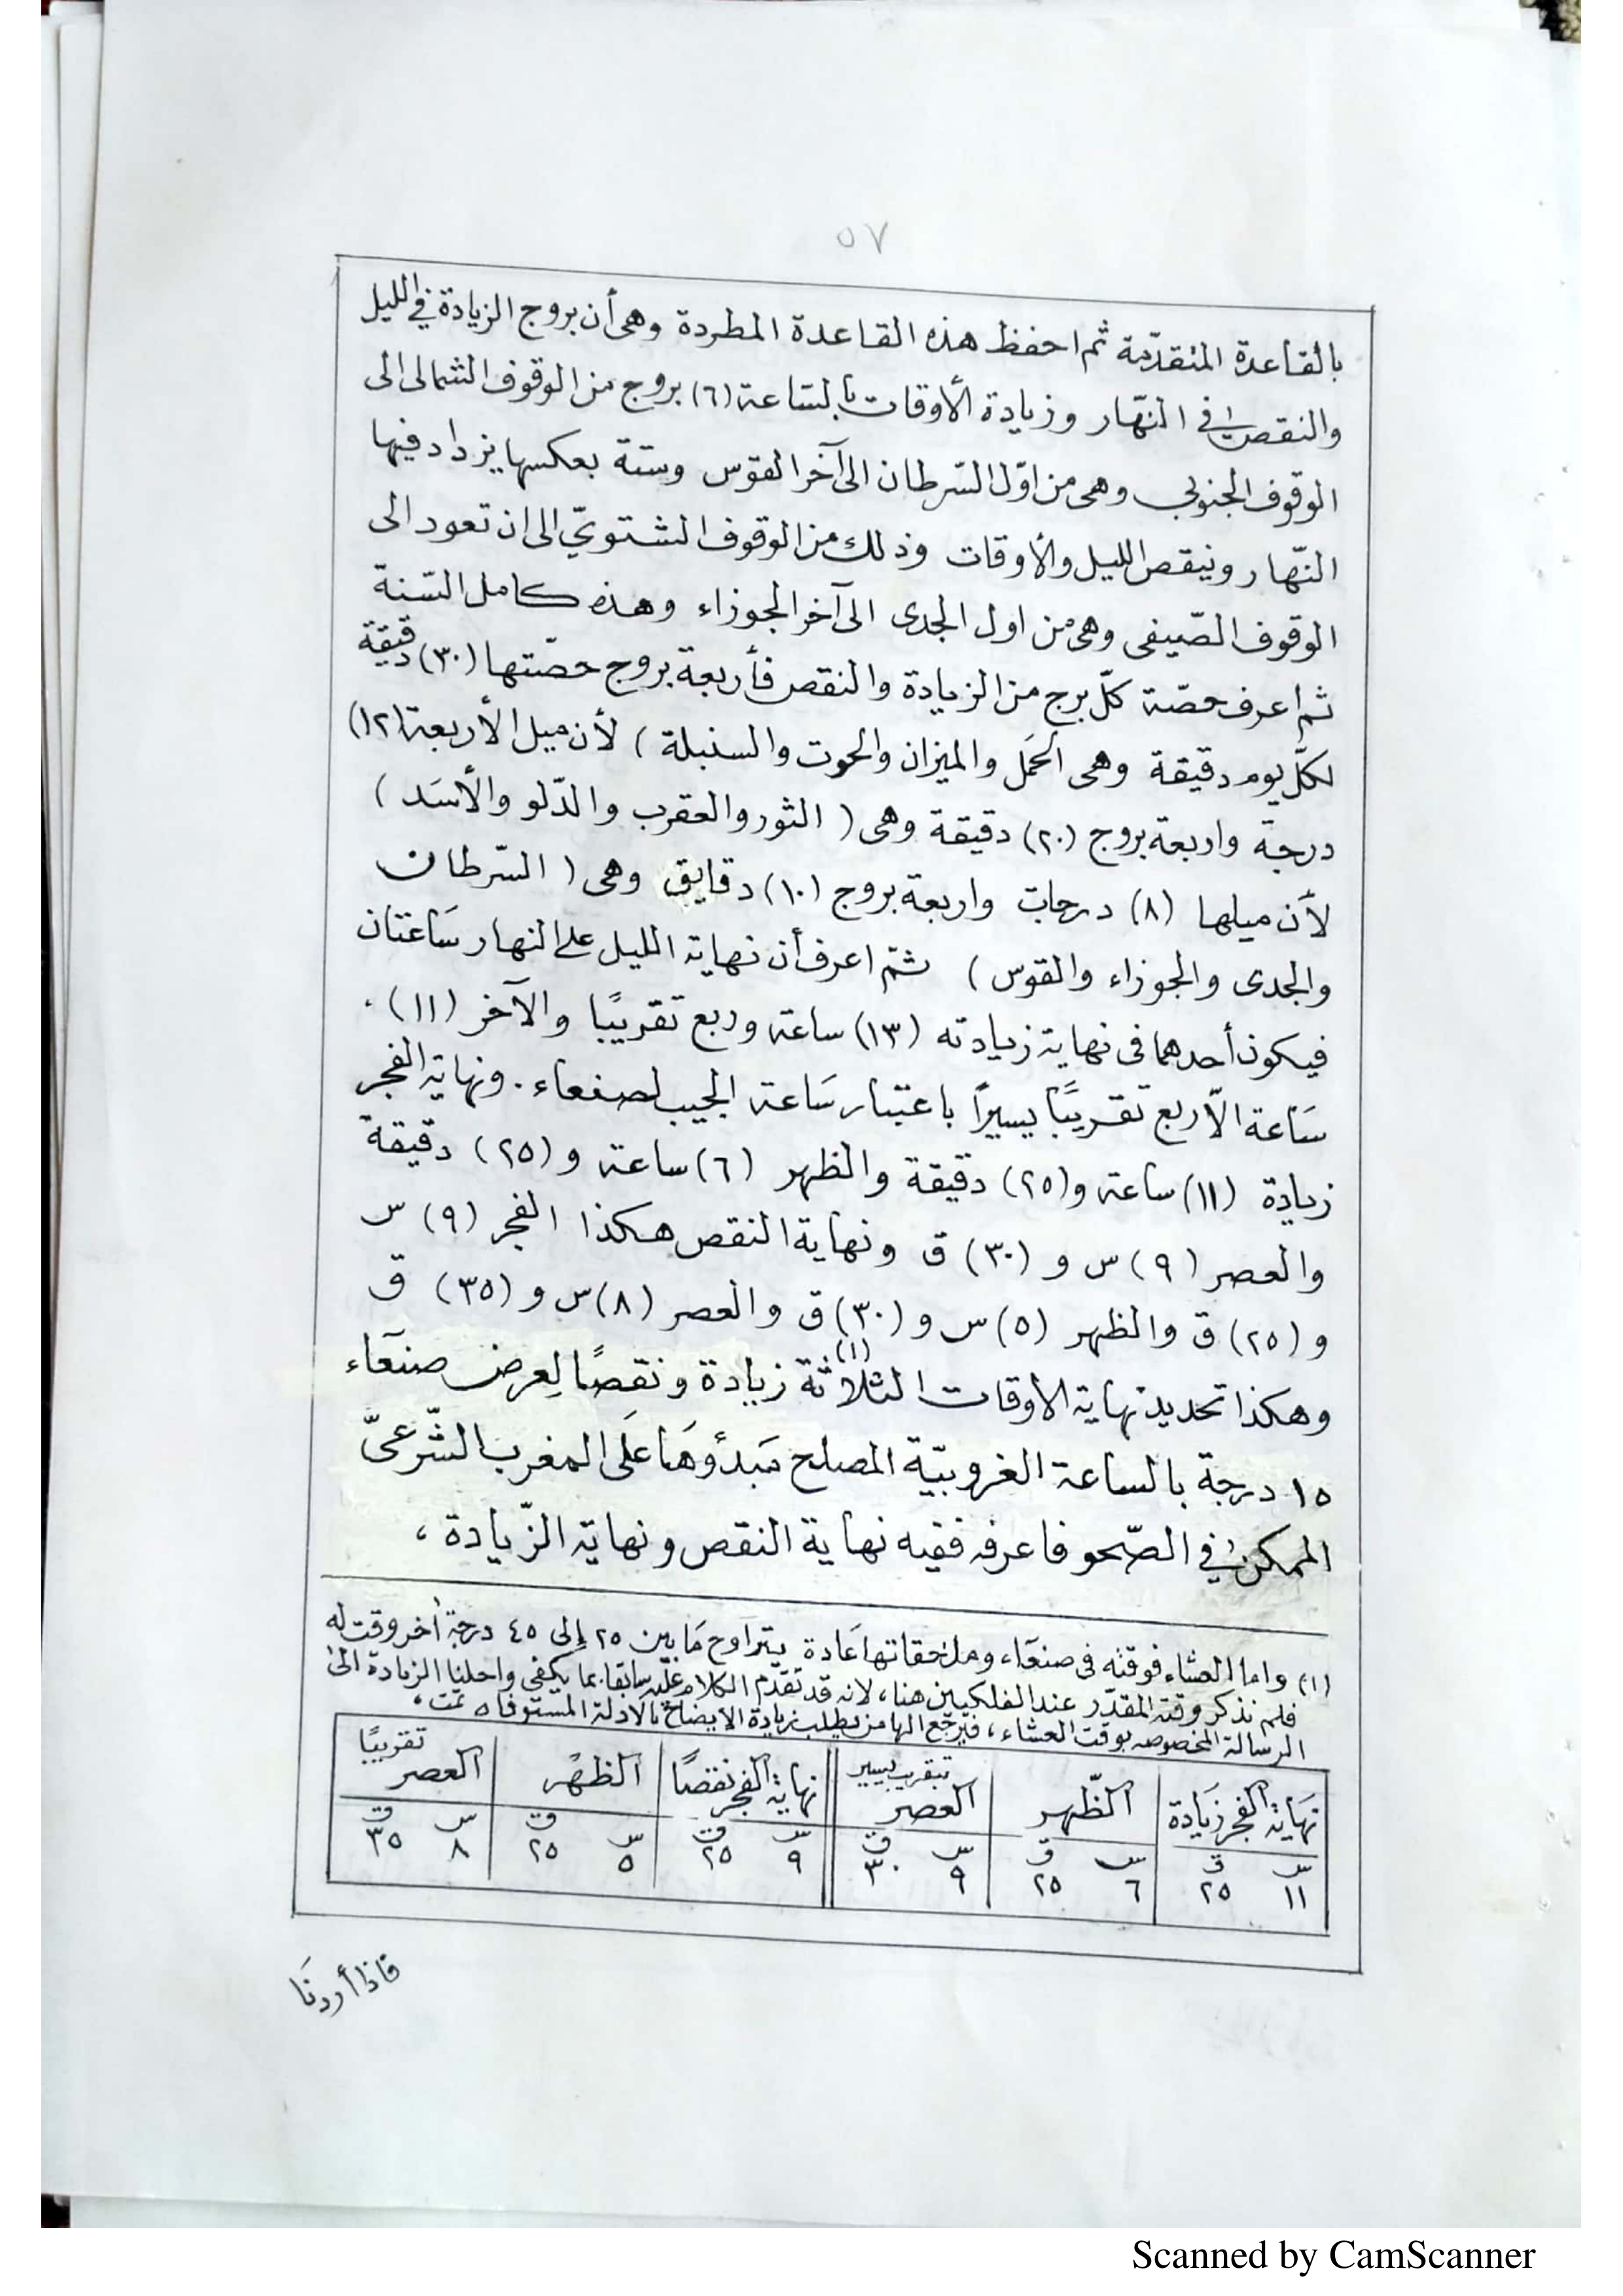 ٥٧
بالقاعدة المتقدّمة ثم احفظ هذه القاعدة المطردة وهى أن بروج الزيادة في الليل
والنقص في النهّار وزيادة الأوقات بالسّاعة (٦) بروج من الوقوف الشمالى الى
الوقوف الجنوبي وهى من اوّل السّرطان الى آخر القوس وستة بعكسها يزداد فيها
النّهار وينقص الليل والأوقات وذلك من الوقوف الشتويّ الى ان تعود الى
الوقوف الصّيفى وهى من اول الجدى الى آخر الجوزاء وهذه كامل السّنة
ثم اعرف حصّة كلّ برج من الزيادة والنقص فأربعة بروج حصّتها (٣٠) دقيقة
لكلّ يوم دقيقة وهى الحَمَل والميزان والحوت والسنبلة ) لأن ميل الأربعة (١٢)
درجة واربعة بروج (٢٠) دقيقة وهى ( الثور والعقرب والدّلو والأسَد )
لأن ميلها (٨) درجات واربعة بروج (١٠) دقايق وهى ( السّرطان
والجدى والجوزاء والقوس ) ثمّ اعرف أن نهاية الليل على النهار سَاعتان
فيكون أحدهما فى نهاية زيادته (١٣) ساعة وربع تقريبًا والآخر (١١) .
سَاعة الاّ ربع تقريبًا يسيرًا باعتبار سَاعة الجيب لصنعاء . ونهاية الفجر
زيادة (١١) ساعة و (٢٥) دقيقة والظهر (٦) ساعة و (٢٥) دقيقة
والعصر (٩) س و (٣٠) ق ونهاية النقص هكذا الفجر (٩) س
و (٢٥) ق والظهر (٥) س و (٣٠) ق والعصر (٨) س و (٣٥) ق
وهكذا تحديد نهاية الاوقات الثلاثة (١) زيادة ونقصًا لِعرض صنعَاء
١٥ درجة بالساعة الغروبيّة المصلح مَبدؤهَا عَلَى المغرب الشّرعىّ
الممكن في الصّحو فاعرفه ففيه نهاية النقص ونهاية الزّيادة ،
(١) واما العشاء فوقته فى صنعَاء وملحقاتها عَادة يتراوح مَا بين ٢٥ إلى ٤٥ درجة أخر وقت له
فلم نذكر وقته المقدّر عند الفلكيين هنا ، لانه قد تقدّم الكلام عليه سابقا بما يكفى واحلنا الزيادة الى
الرسالة المخصوصه بوقت العشاء ، فيرجع الها من يطلب زيادة الايضاح بالادلة المستوفاه تمت ،
نهَاية الفجر زيَادة الظّهر بتقريب يسير العصر نهاية الفجر نقصًا الظهْر تقريبًا العصر
س ق س ق س ق س ق س ق س ق
١١ ٢٥ ٦ ٢٥ ٩ ٣٠ ٩ ٢٥ ٥ ٢٥ ٨ ٣٥
فاذا أردنَا
Scanned by CamScanner